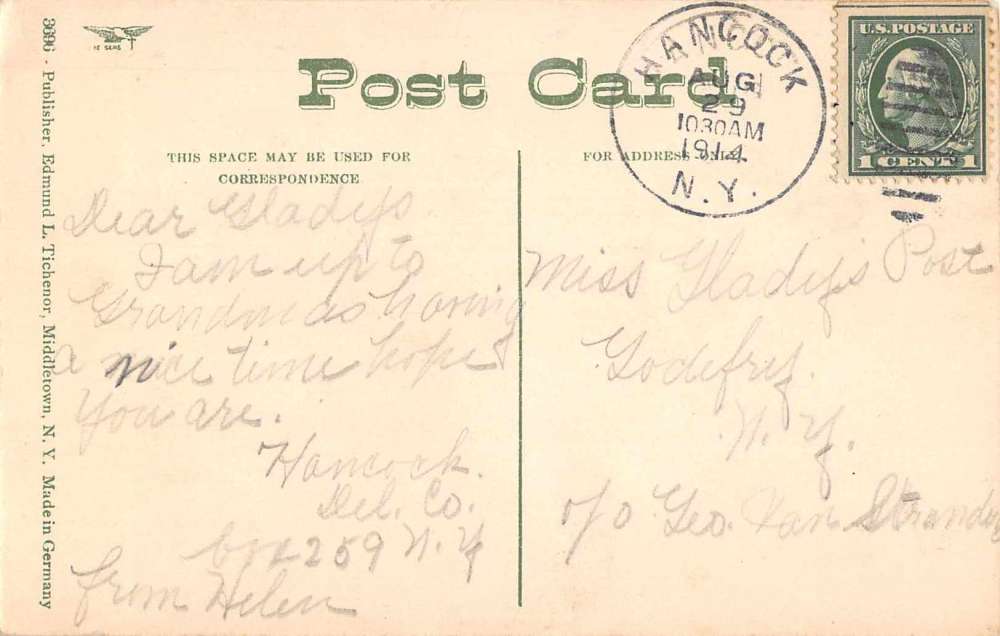 3696 - Publisher, Edmund L. Tichenor, Middletown, N. Y. Made in Germany
Post Card
THIS SPACE MAY BE USED FOR
CORRESPONDENCE
FOR ADDRESS ONLY
HANCOCK
AUG
29
1030AM
1914
N.Y.
U.S. POSTAGE
1 CENT 1
Dear Gladys
I am up to
Grandmas having
a nice time hope
you are.
Hancock.
Del. Co.
box 259 N. Y
from Helen
Miss Gladys Post
Godefrey.
N. Y.
c/o Geo. Van